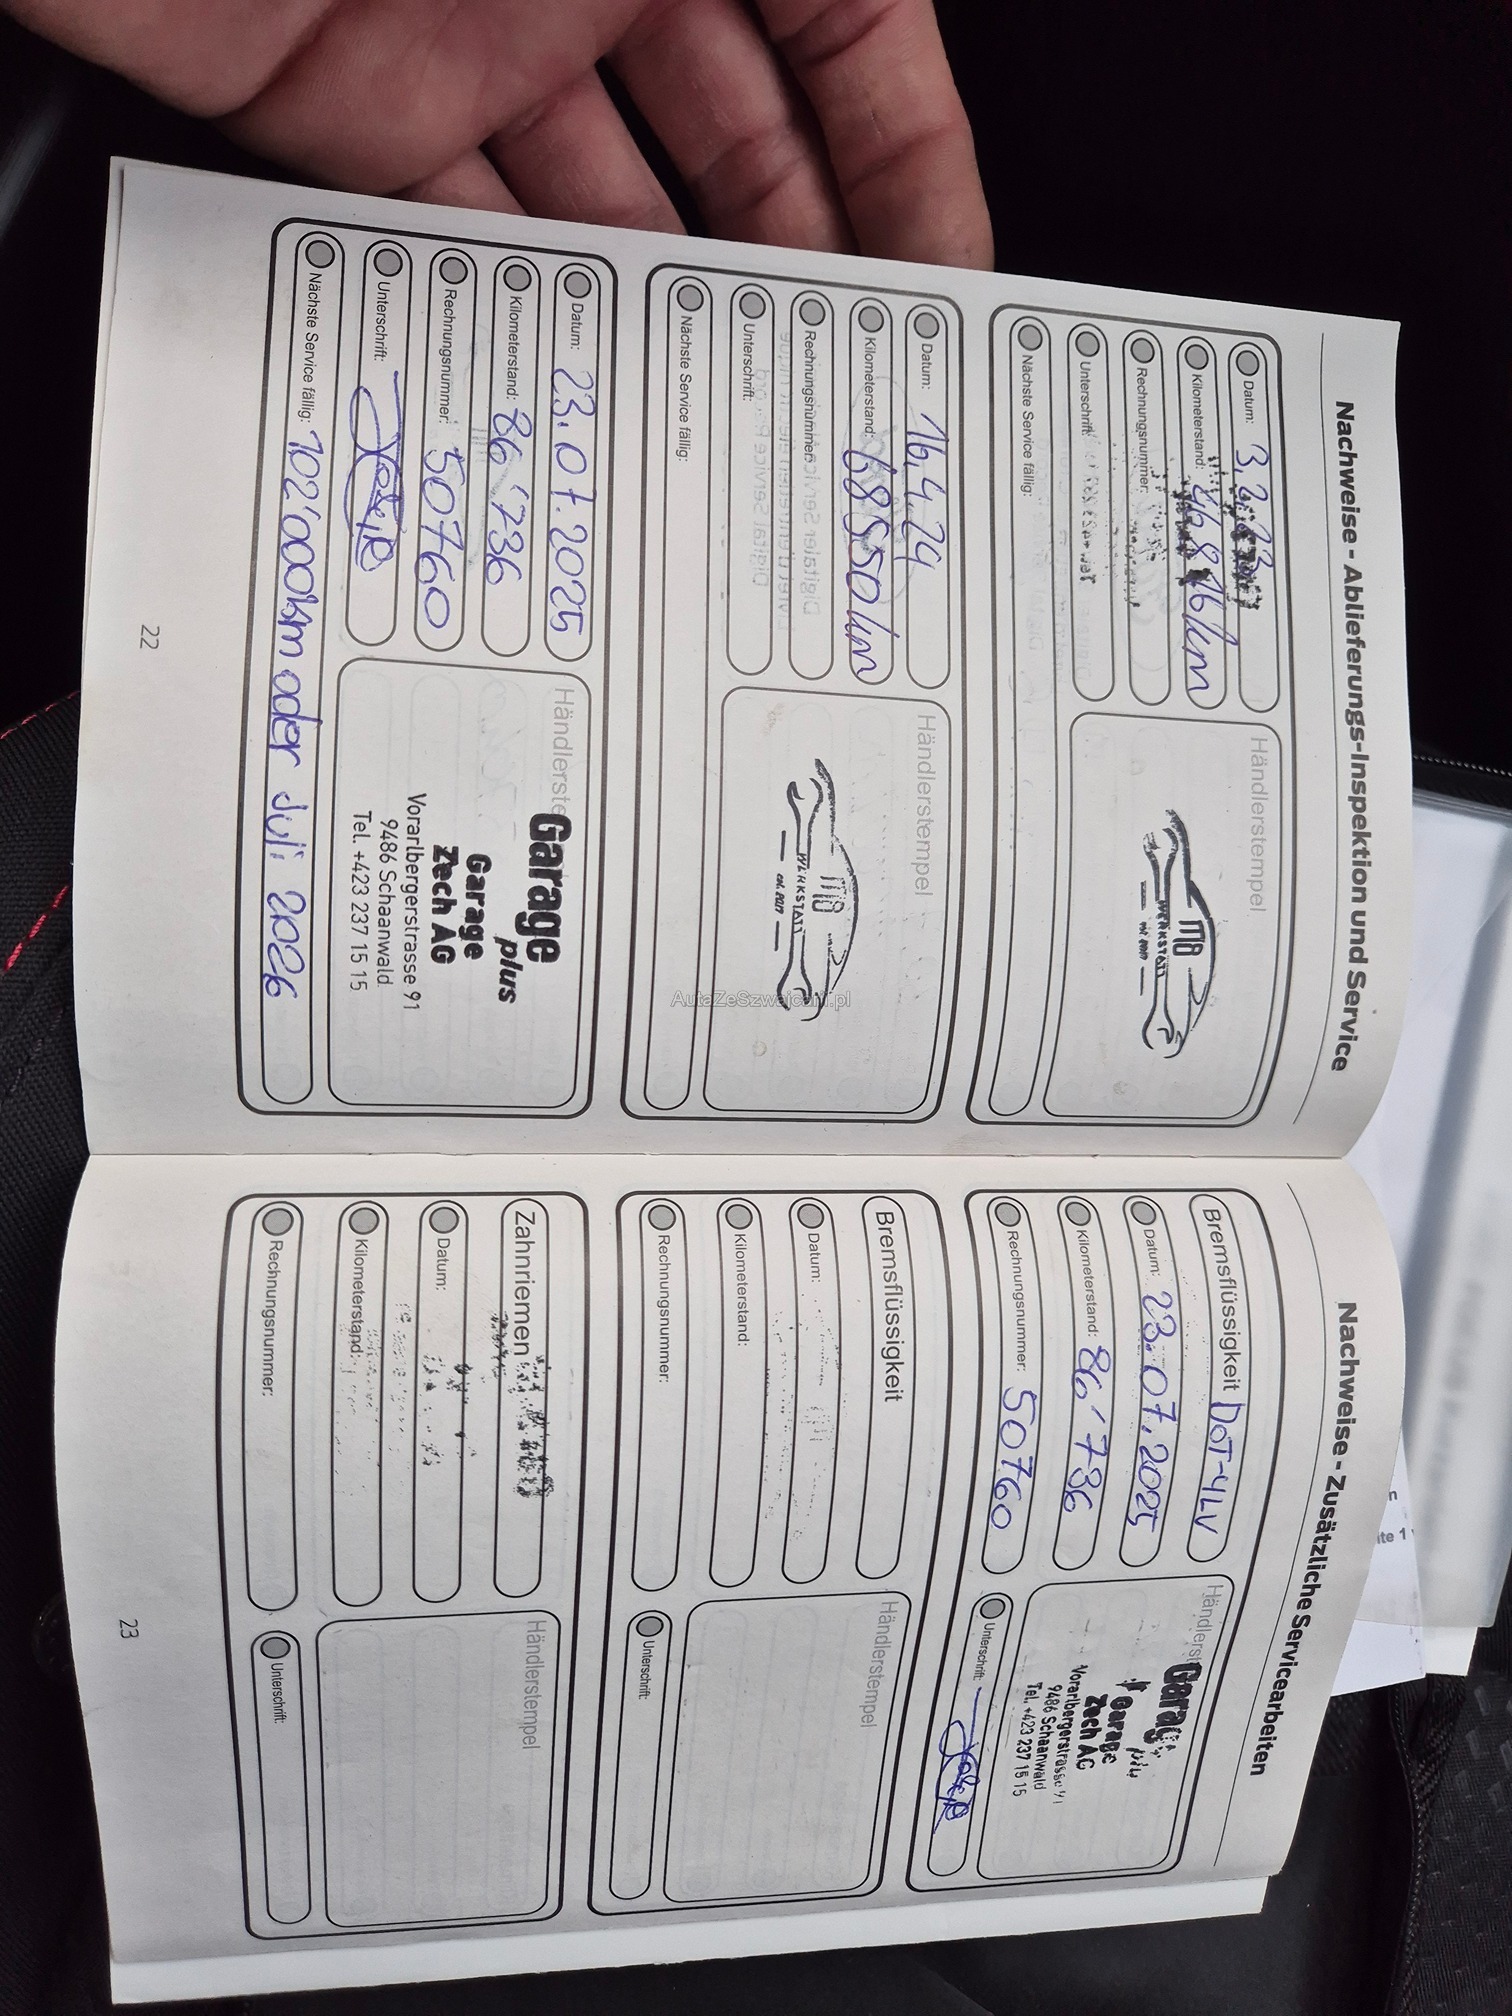 Nachweise - Ablieferungs-Inspektion und Service
Datum: 3.2.23
Kilometerstand: km
Rechnungsnummer:
Unterschrift:
Nächste Service fällig:
Händlerstempel
M8
WERKSTATT
est. 2017
Datum: 16.4.24
Kilometerstand: 68550 km
Rechnungsnummer:
Unterschrift:
Nächste Service fällig:
Händlerstempel
M8
WERKSTATT
est. 2017
AutaZeSzwajcarii.pl
Datum: 23.07.2025
Kilometerstand: 86'736
Rechnungsnummer: 50760
Unterschrift:
Nächste Service fällig: 102'000km oder Juli 2026
Händlerste
Garage
plus
Garage
Zech AG
Vorarlbergerstrasse 91
9486 Schaanwald
Tel. +423 237 15 15
22
Nachweise - Zusätzliche Servicearbeiten
Bremsflüssigkeit DOT-4LV
Datum: 23.07.2025
Kilometerstand: 86'736
Rechnungsnummer: 50760
Händlerst
Garag
plu
Garage
Zech AG
Vorarlbergerstrasse 91
9486 Schaanwald
Tel. +423 237 15 15
Unterschrift:
Bremsflüssigkeit
Datum:
Kilometerstand:
Rechnungsnummer:
Händlerstempel
Unterschrift:
Zahnriemen
Datum:
Kilometerstand:
Rechnungsnummer:
Händlerstempel
Unterschrift:
23